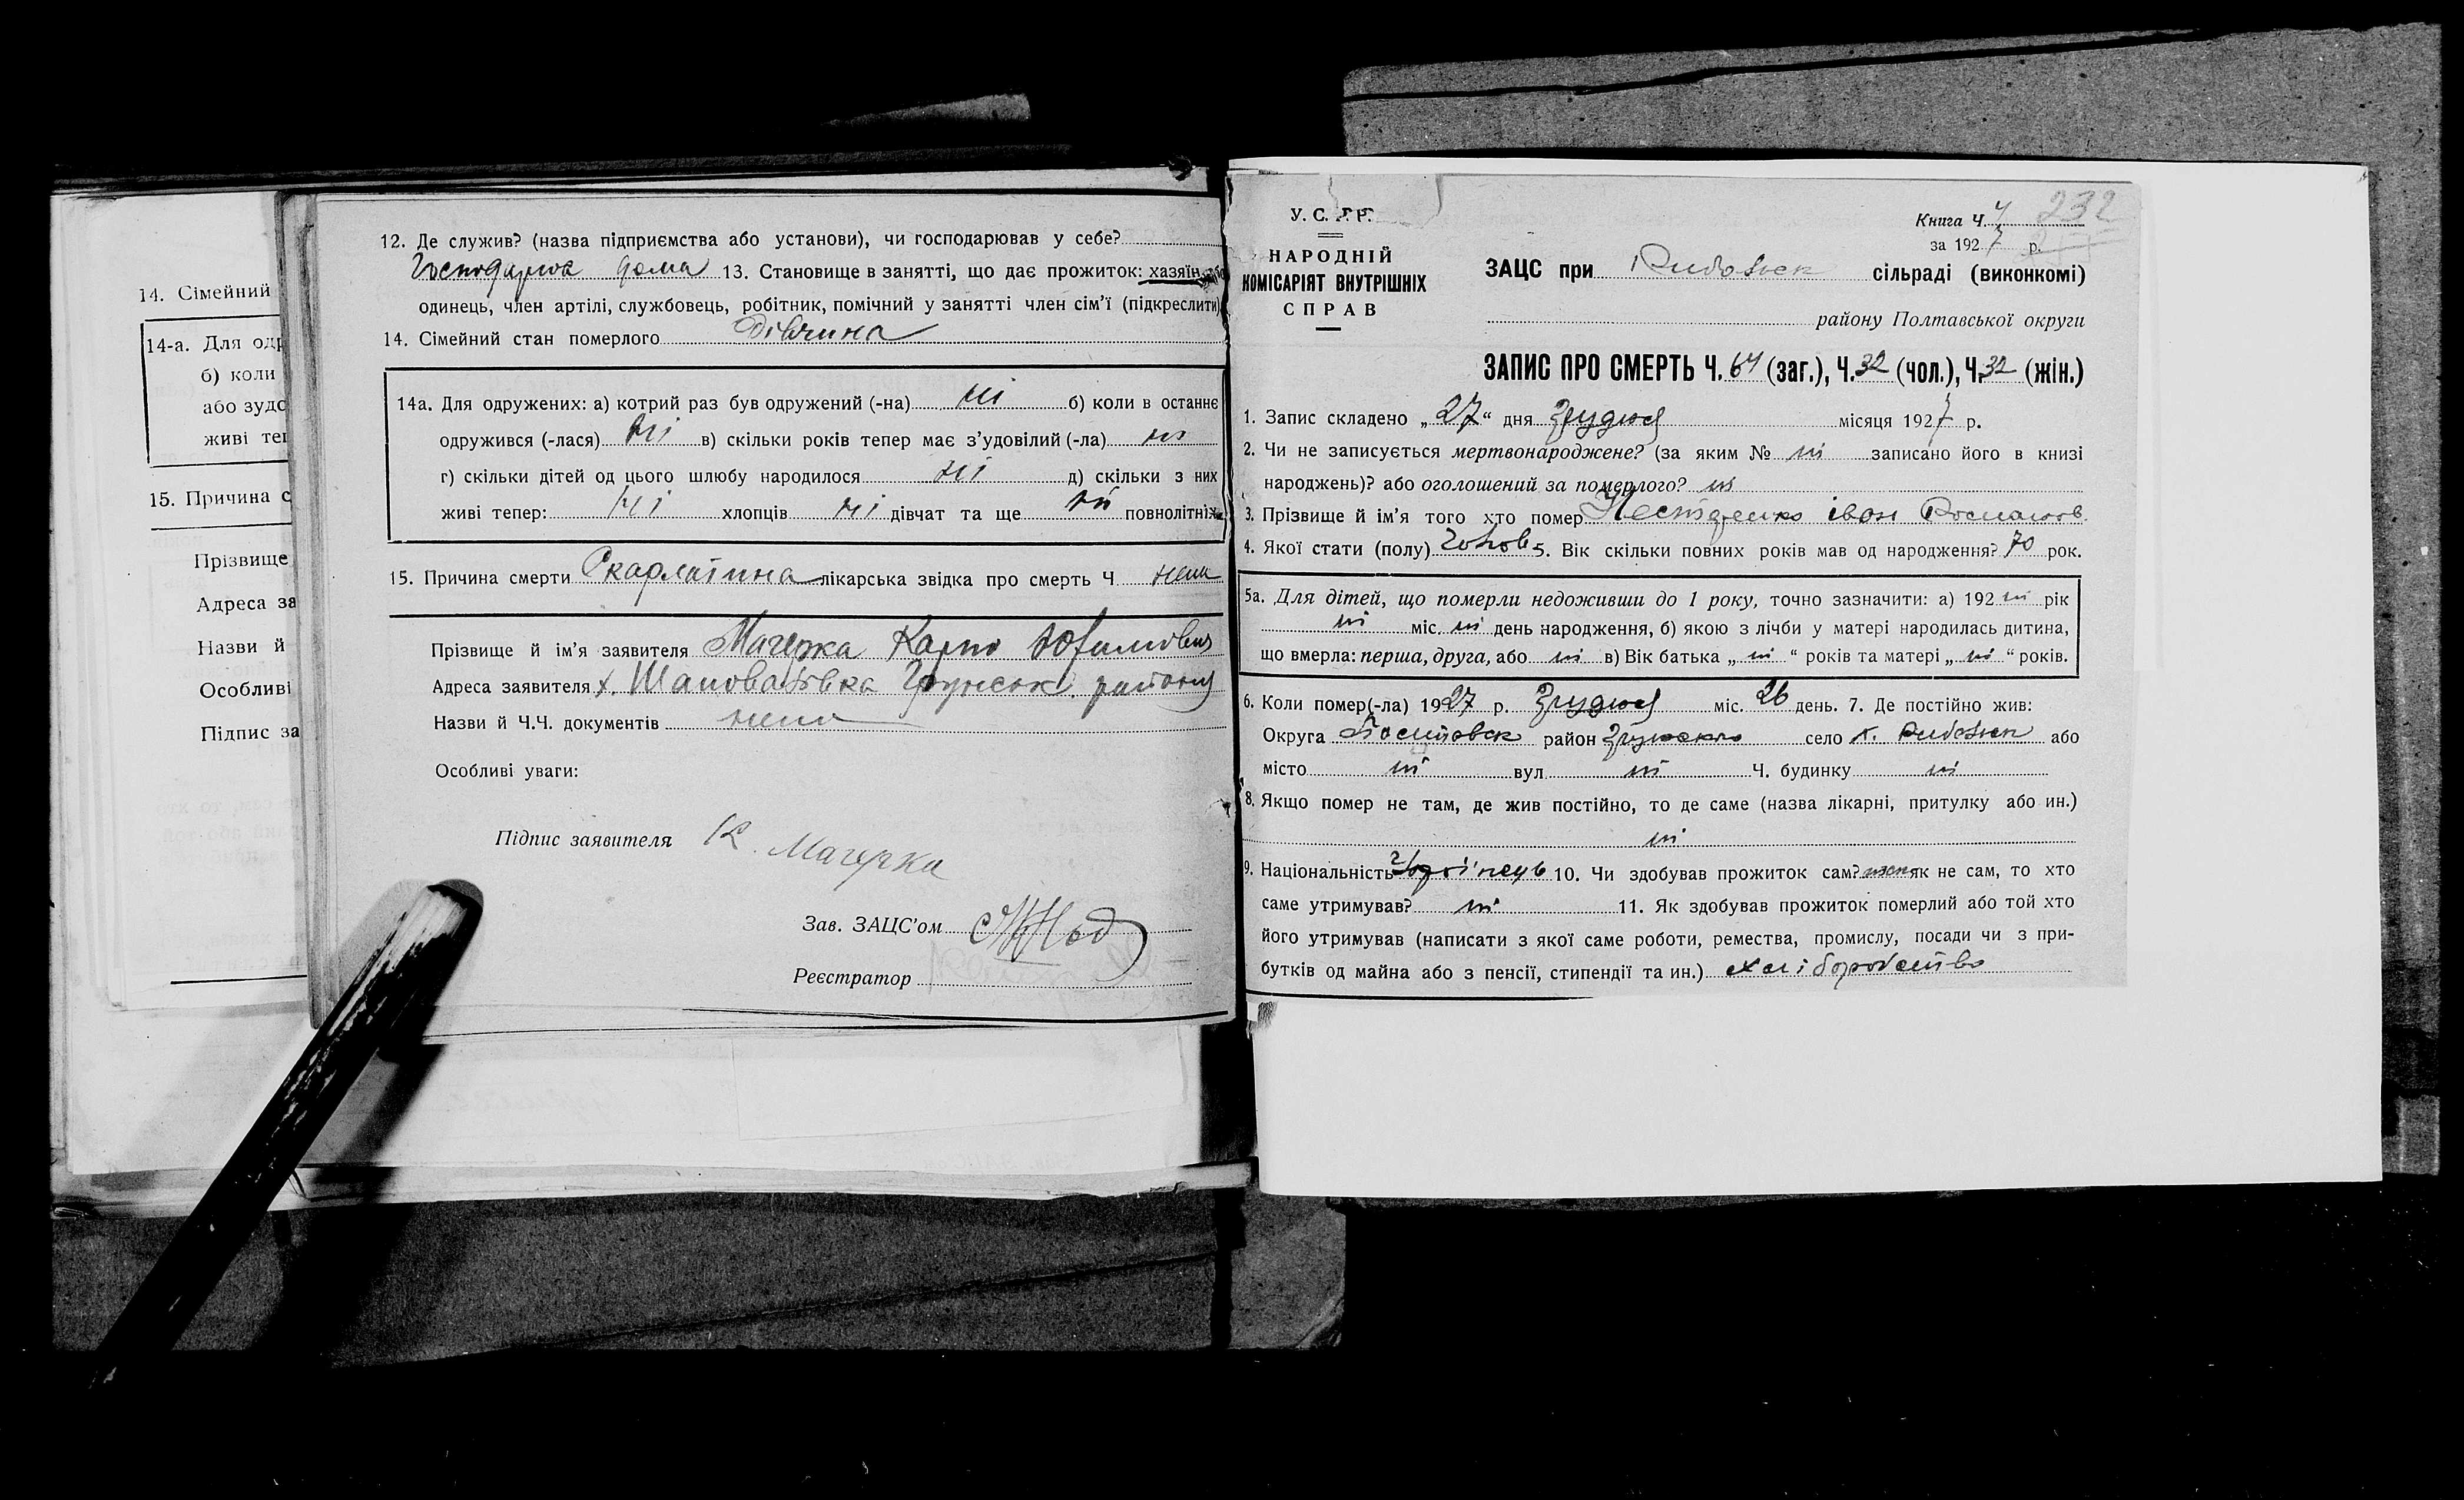 14. Сімейний
14-а. Для одр
б) коли
або зудо
живі теп
15. Причина с
Прізвище
Адреса за
Назви й
Особливі
Підпис за
12. Де служив? (назва підприємства або установи), чи господарював у себе?
Господарюв дома 13. Становище в занятті, що дає прожиток: хазяїн, або
одинець, член артілі, службовець, робітник, помічний у занятті член сім'ї (підкреслити)
14. Сімейний стан померлого Дівчина
14а. Для одружених: а) котрий раз був одружений (-на) ні б) коли в останнє
одружився (-лася) ні в) скільки років тепер має з'удовілий (-ла) ні
г) скільки дітей од цього шлюбу народилося ні д) скільки з них
живі тепер: ні хлопців ні дівчат та ще ні повнолітніх
15. Причина смерти Скарлатина лікарська звідка про смерть Ч нема
Прізвище й ім'я заявителя Магерка Карпо Юхимович
Адреса заявителя х. Шаповалівка Грунськ. району
Назви й Ч.Ч. документів нема
Особливі уваги:
Підпис заявителя К. Магерка
Зав. ЗАЦС'ом
Реєстратор
У. С. Р. Р.
НАРОДНІЙ
КОМІСАРІЯТ ВНУТРІШНІХ
СПРАВ
Книга Ч. 4 232
за 1927 р.
ЗАЦС при сільраді (виконкомі)
району Полтавської округи
ЗАПИС ПРО СМЕРТЬ Ч. 64 (заг.), Ч. 32 (чол.), Ч. 32 (жін.)
1. Запис складено „27“ дня Грудня місяця 1927 р.
2. Чи не записується мертвонароджене? (за яким № ні записано його в книзі
народжень)? або оголошений за померлого? ні
3. Прізвище й ім'я того хто помер Нестеренко Іван Романов.
4. Якої стати (полу) Чолов 5. Вік скільки повних років мав од народження? 70 рок.
5а. Для дітей, що померли недоживши до 1 року, точно зазначити: а) 192 ні рік
ні міс. ні день народження, б) якою з лічби у матері народилась дитина,
що вмерла: перша, друга, або ні в) Вік батька „ ні “ років та матері „ ні “ років.
6. Коли помер(-ла) 1927 р. Грудня міс. 26 день. 7. Де постійно жив:
Округа Полтавськ район Грунськ село х. або
місто ні вул ні Ч. будинку ні
8. Якщо помер не там, де жив постійно, то де саме (назва лікарні, притулку або ин.)
ні
9. Національність Українець 10. Чи здобував прожиток сам? як не сам, то хто
саме утримував? ні 11. Як здобував прожиток померлий або той хто
його утримував (написати з якої саме роботи, ремества, промислу, посади чи з при-
бутків од майна або з пенсії, стипендії та ин.) хліборобство